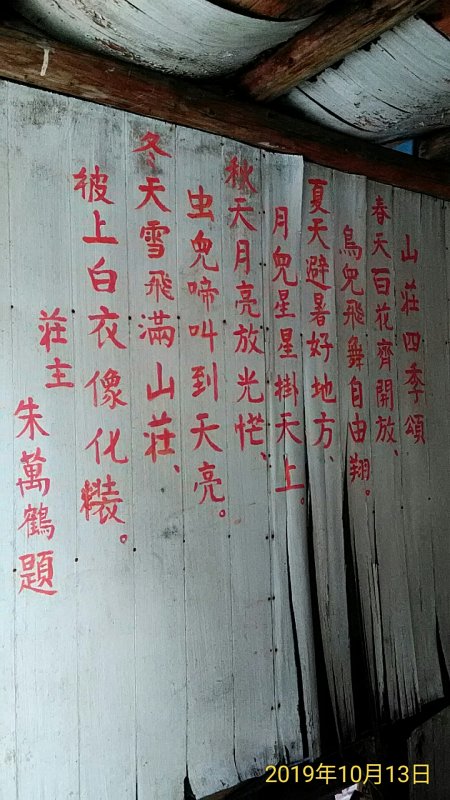 山莊四季頌
春天百花齊開放、
鳥兒飛舞自由翔。
夏天避暑好地方、
月兒星星掛天上。
秋天月亮放光恾、
虫兒啼叫到天亮。
冬天雪飛滿山莊、
彼上白衣像化糚。
莊主
朱萬鶴題
2019年10月13日